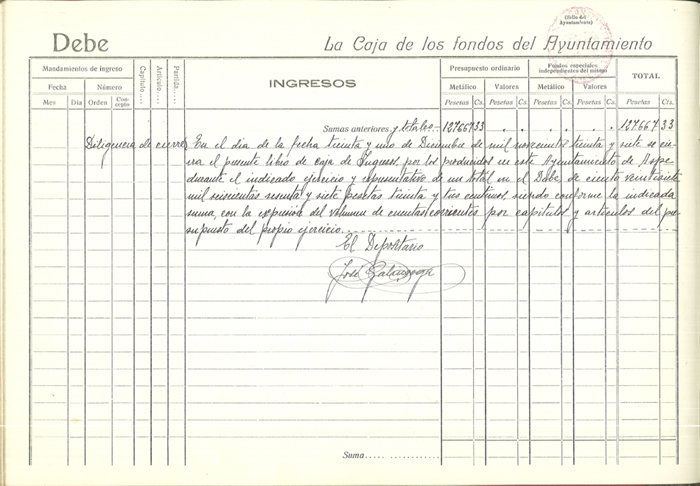 (Sello del
Ayuntamiento)
Debe La Caja de los fondos del Ayuntamiento
Mandamientos de ingreso
Fecha Número
Mes Día Orden Concepto
Capítulo....
Artículo....
Partida....
INGRESOS
Presupuesto ordinario
Metálico Valores
Pesetas Cs. Pesetas Cs.
Fondos especiales
independientes del mismo
Metálico Valores
Pesetas Cs. Pesetas Cs.
TOTAL
Pesetas Cts.
Sumas anteriores y totales... 127667 33 127667 33
Diligencia de cierre En el dia de la fecha treinta y uno de Diciembre de mil novecientos treinta y siete se cie-
rra el presente libro de caja de Ingresos, por los producidos en este Ayuntamiento de
durante el indicado ejercicio y representativo de un total en el Debe de ciento veintisiete
mil seiscientas sesenta y siete pesetas treinta y tres centimos, siendo conforme la indicada
suma, con la expresión del volumen de cuentas corrientes por capitulos y articulos del pre-
supuesto del propio ejercicio.
El Depositario
José
Suma..... ............